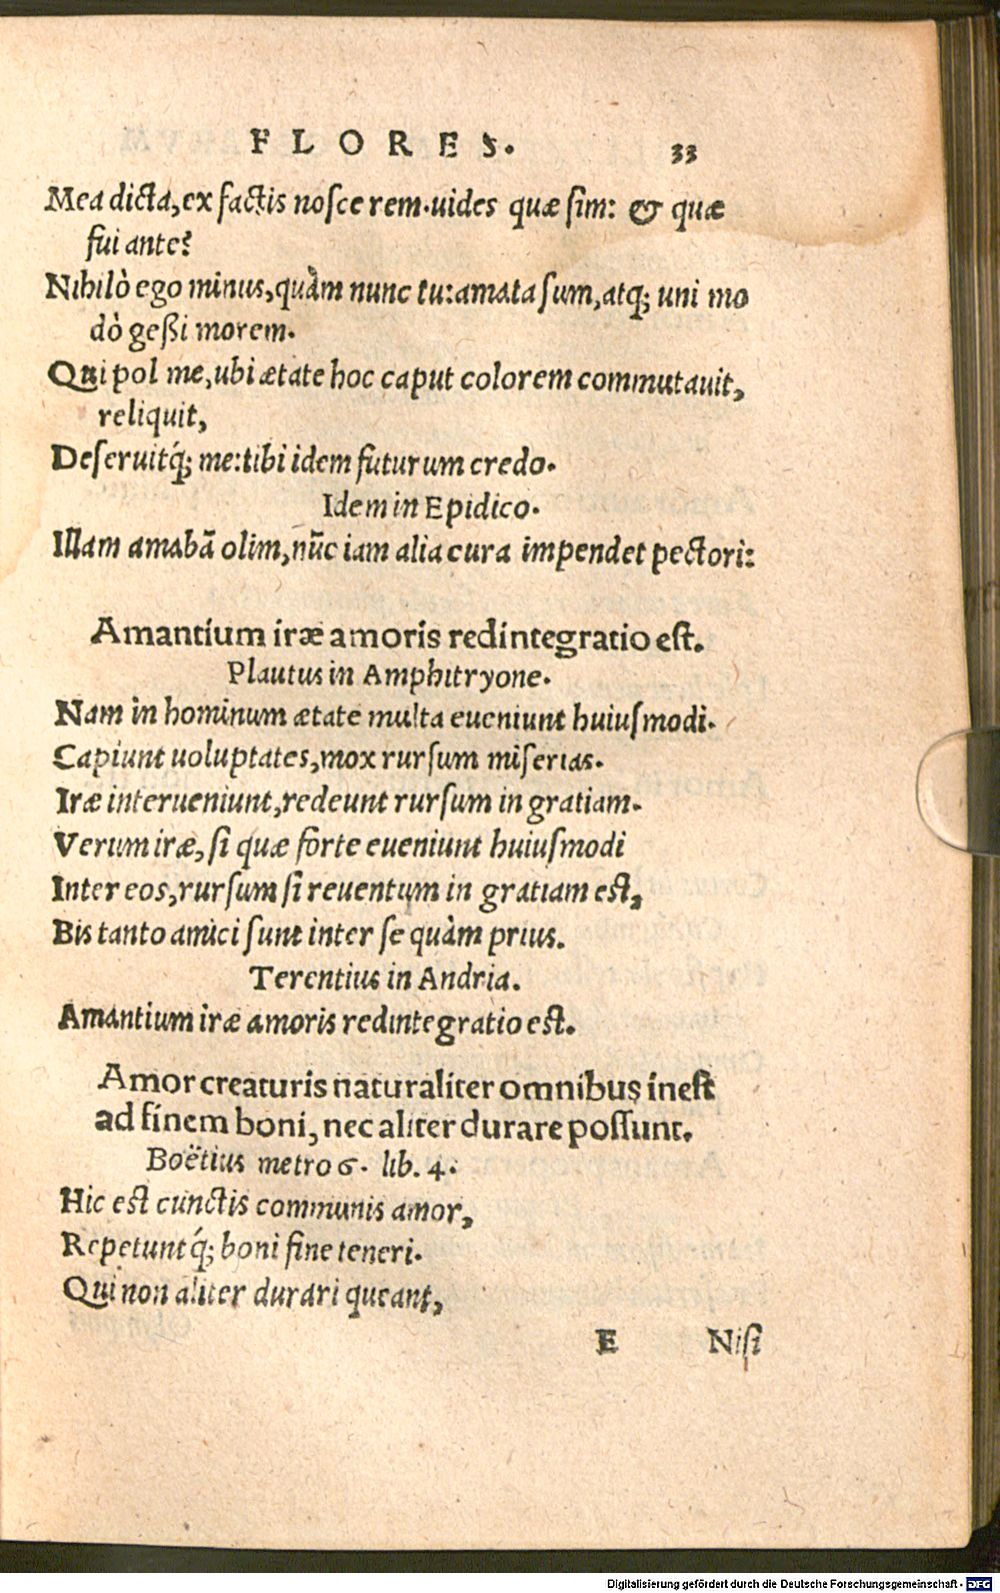 FLORES. 33
Mea dicta, ex factis nosce rem. uides quæ sim: & quæ
fui ante?
Nihilò ego minus, quàm nunc tu: amata sum, atq; uni mo
dò geßi morem.
Qui pol me, ubi ætate hoc caput colorem commutauit,
reliquit,
Deseruitq́; me: tibi idem futurum credo.
Idem in Epidico.
Illam amabā olim, nūc iam alia cura impendet pectori:
Amantium iræ amoris redintegratio est.
Plautus in Amphitryone.
Nam in hominum ætate multa eueniunt huiusmodi.
Capiunt uoluptates, mox rursum miserias.
Iræ interueniunt, redeunt rursum in gratiam.
Verum iræ, si quæ forte eueniunt huiusmodi
Inter eos, rursum si reuentum in gratiam est,
Bis tanto amici sunt inter se quàm prius.
Terentius in Andria.
Amantium iræ amoris redintegratio est.
Amor creaturis naturaliter omnibus inest
ad finem boni, nec aliter durare possunt.
Boëtius metro 6. lib. 4.
Hic est cunctis communis amor,
Repetuntq́; boni fine teneri.
Qui non aliter durari queant,
E Nisi
Digitalisierung gefördert durch die Deutsche Forschungsgemeinschaft - DFG